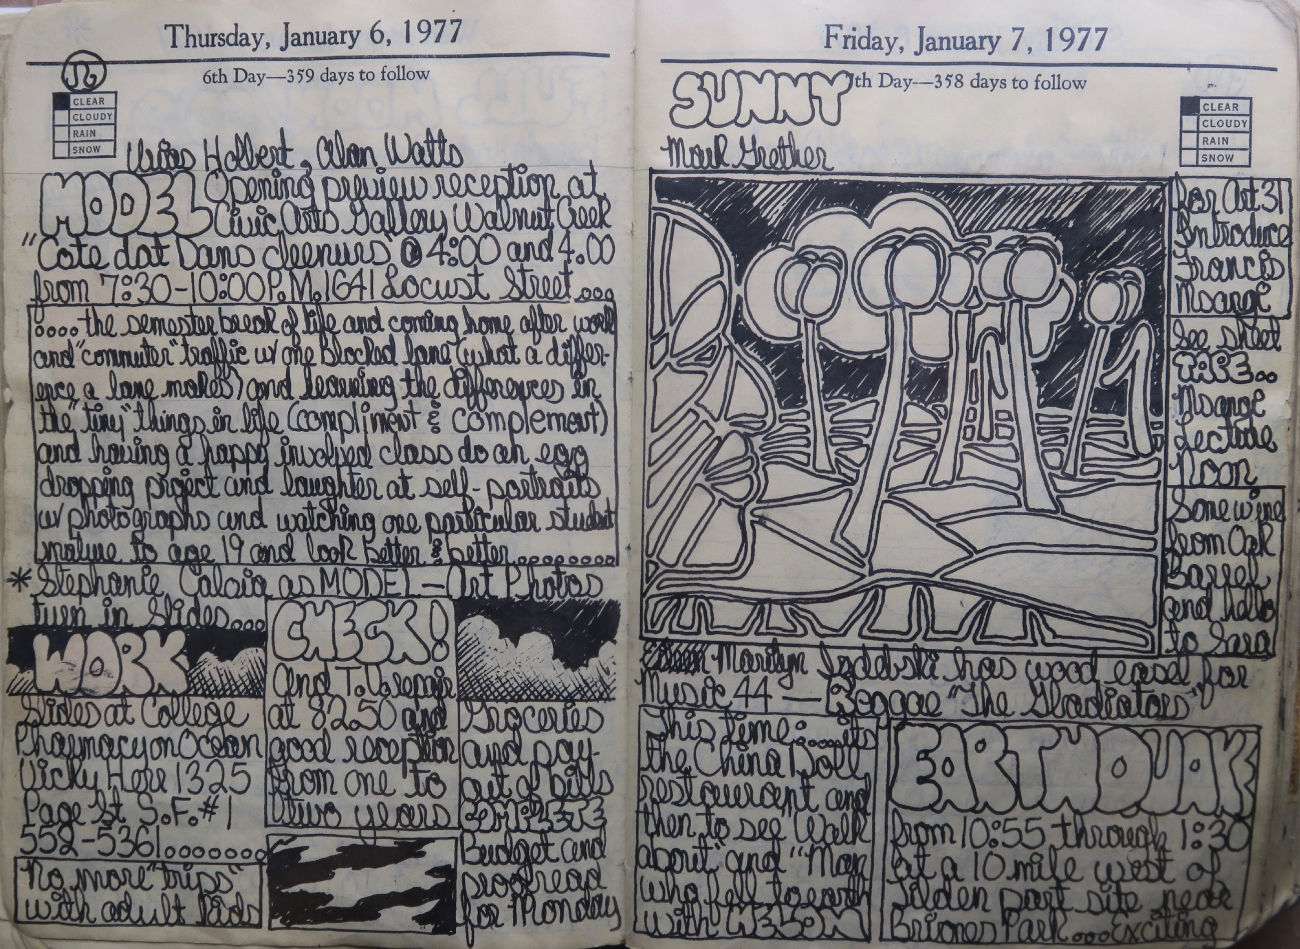 Thursday, January 6, 1977
6th Day—359 days to follow
CLEAR
CLOUDY
RAIN
SNOW
Holbert, Alan Watts
MODEL Opening preview reception at
Civic Arts Gallery Walnut Creek
"Cote dat Dans @ 4:00 and 4.00
from 7:30-10:00P.M. 1641 Locust Street...
....the semester break of life and coming home after work
and "commuter" traffic w/ one blocked lane (what a differ-
ence a lane makes) and learning the differences in
the "tiny" things in life (compliment & complement)
and having a happy involved class do an ego
dropping project and laughter at self-portraits
w/ photographs and watching one particular student
mature to age 19 and look better & better.........
* Stephanie as MODEL — Art Photos
turn in Slides...
WORK
Slides at College
Pharmacy on Ocean
Vicky Here 1325
Page St S.F. #1
552-5361.......
No more "trips"
with adult kids
CHECK!
and T.V. repair
at 82.50 and
good reception
from one to
two years
Groceries
and pay-
out of bills
Budget and
proofread
for Monday
Friday, January 7, 1977
SUNNY
th Day—358 days to follow
CLEAR
CLOUDY
RAIN
SNOW
Mark Grether
For Art 31
Introduce
Francis
Msangi
See sheet
TAPE..
Msangi
Lecture
Room
Some wine
from Oak
Barrel
and hello
to Sara
Marilyn has wood easel for
Music 44 — Reggae "The Gladiators"
This time.....its
the China Doll
restaurant and
then to see "Walk
about" and "Man
who fell to earth
with
EARTHQUAKE
from 10:55 through 1:30
at a 10 mile west of
Tilden part site near
Briones Park...Exciting